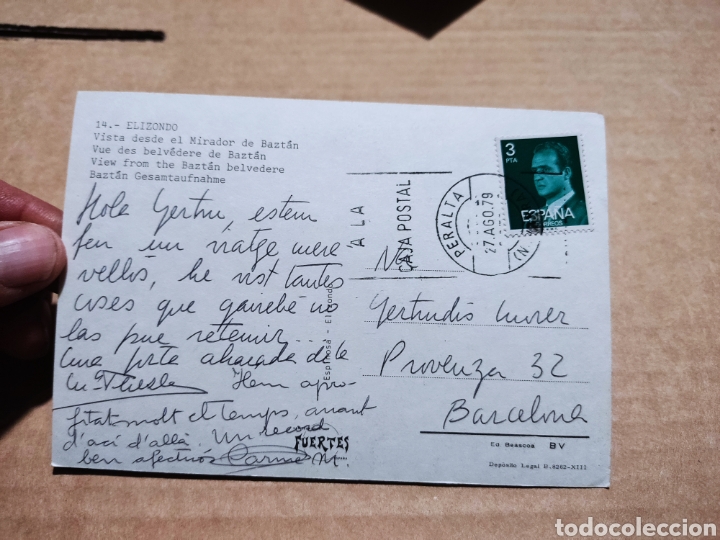 14.- ELIZONDO
Vista desde el Mirador de Baztán
Vue des belvédere de Baztán
View from the Baztán belvedere
Baztán Gesamtaufnahme
Hola Gertru, estem
fen un viatge mere
vellós, he vist tantes
coses que gairebé no
las puc retenir...
Una forta abraçada de la
Hem apro-
fitat molt el temps, anant
d'ací d'allà. Un record
ben afectuós Carme M.
A LA
CAJA POSTAL
PERALTA
27.AGO.79
3
PTA
ESPAÑA
CORREOS
Gertrudis
Provenza 32
Barcelona
Espinosa - Elizondo
FUERTES
Ed Beascoa BV
Depósito Legal B.6262-XIII
todocoleccion